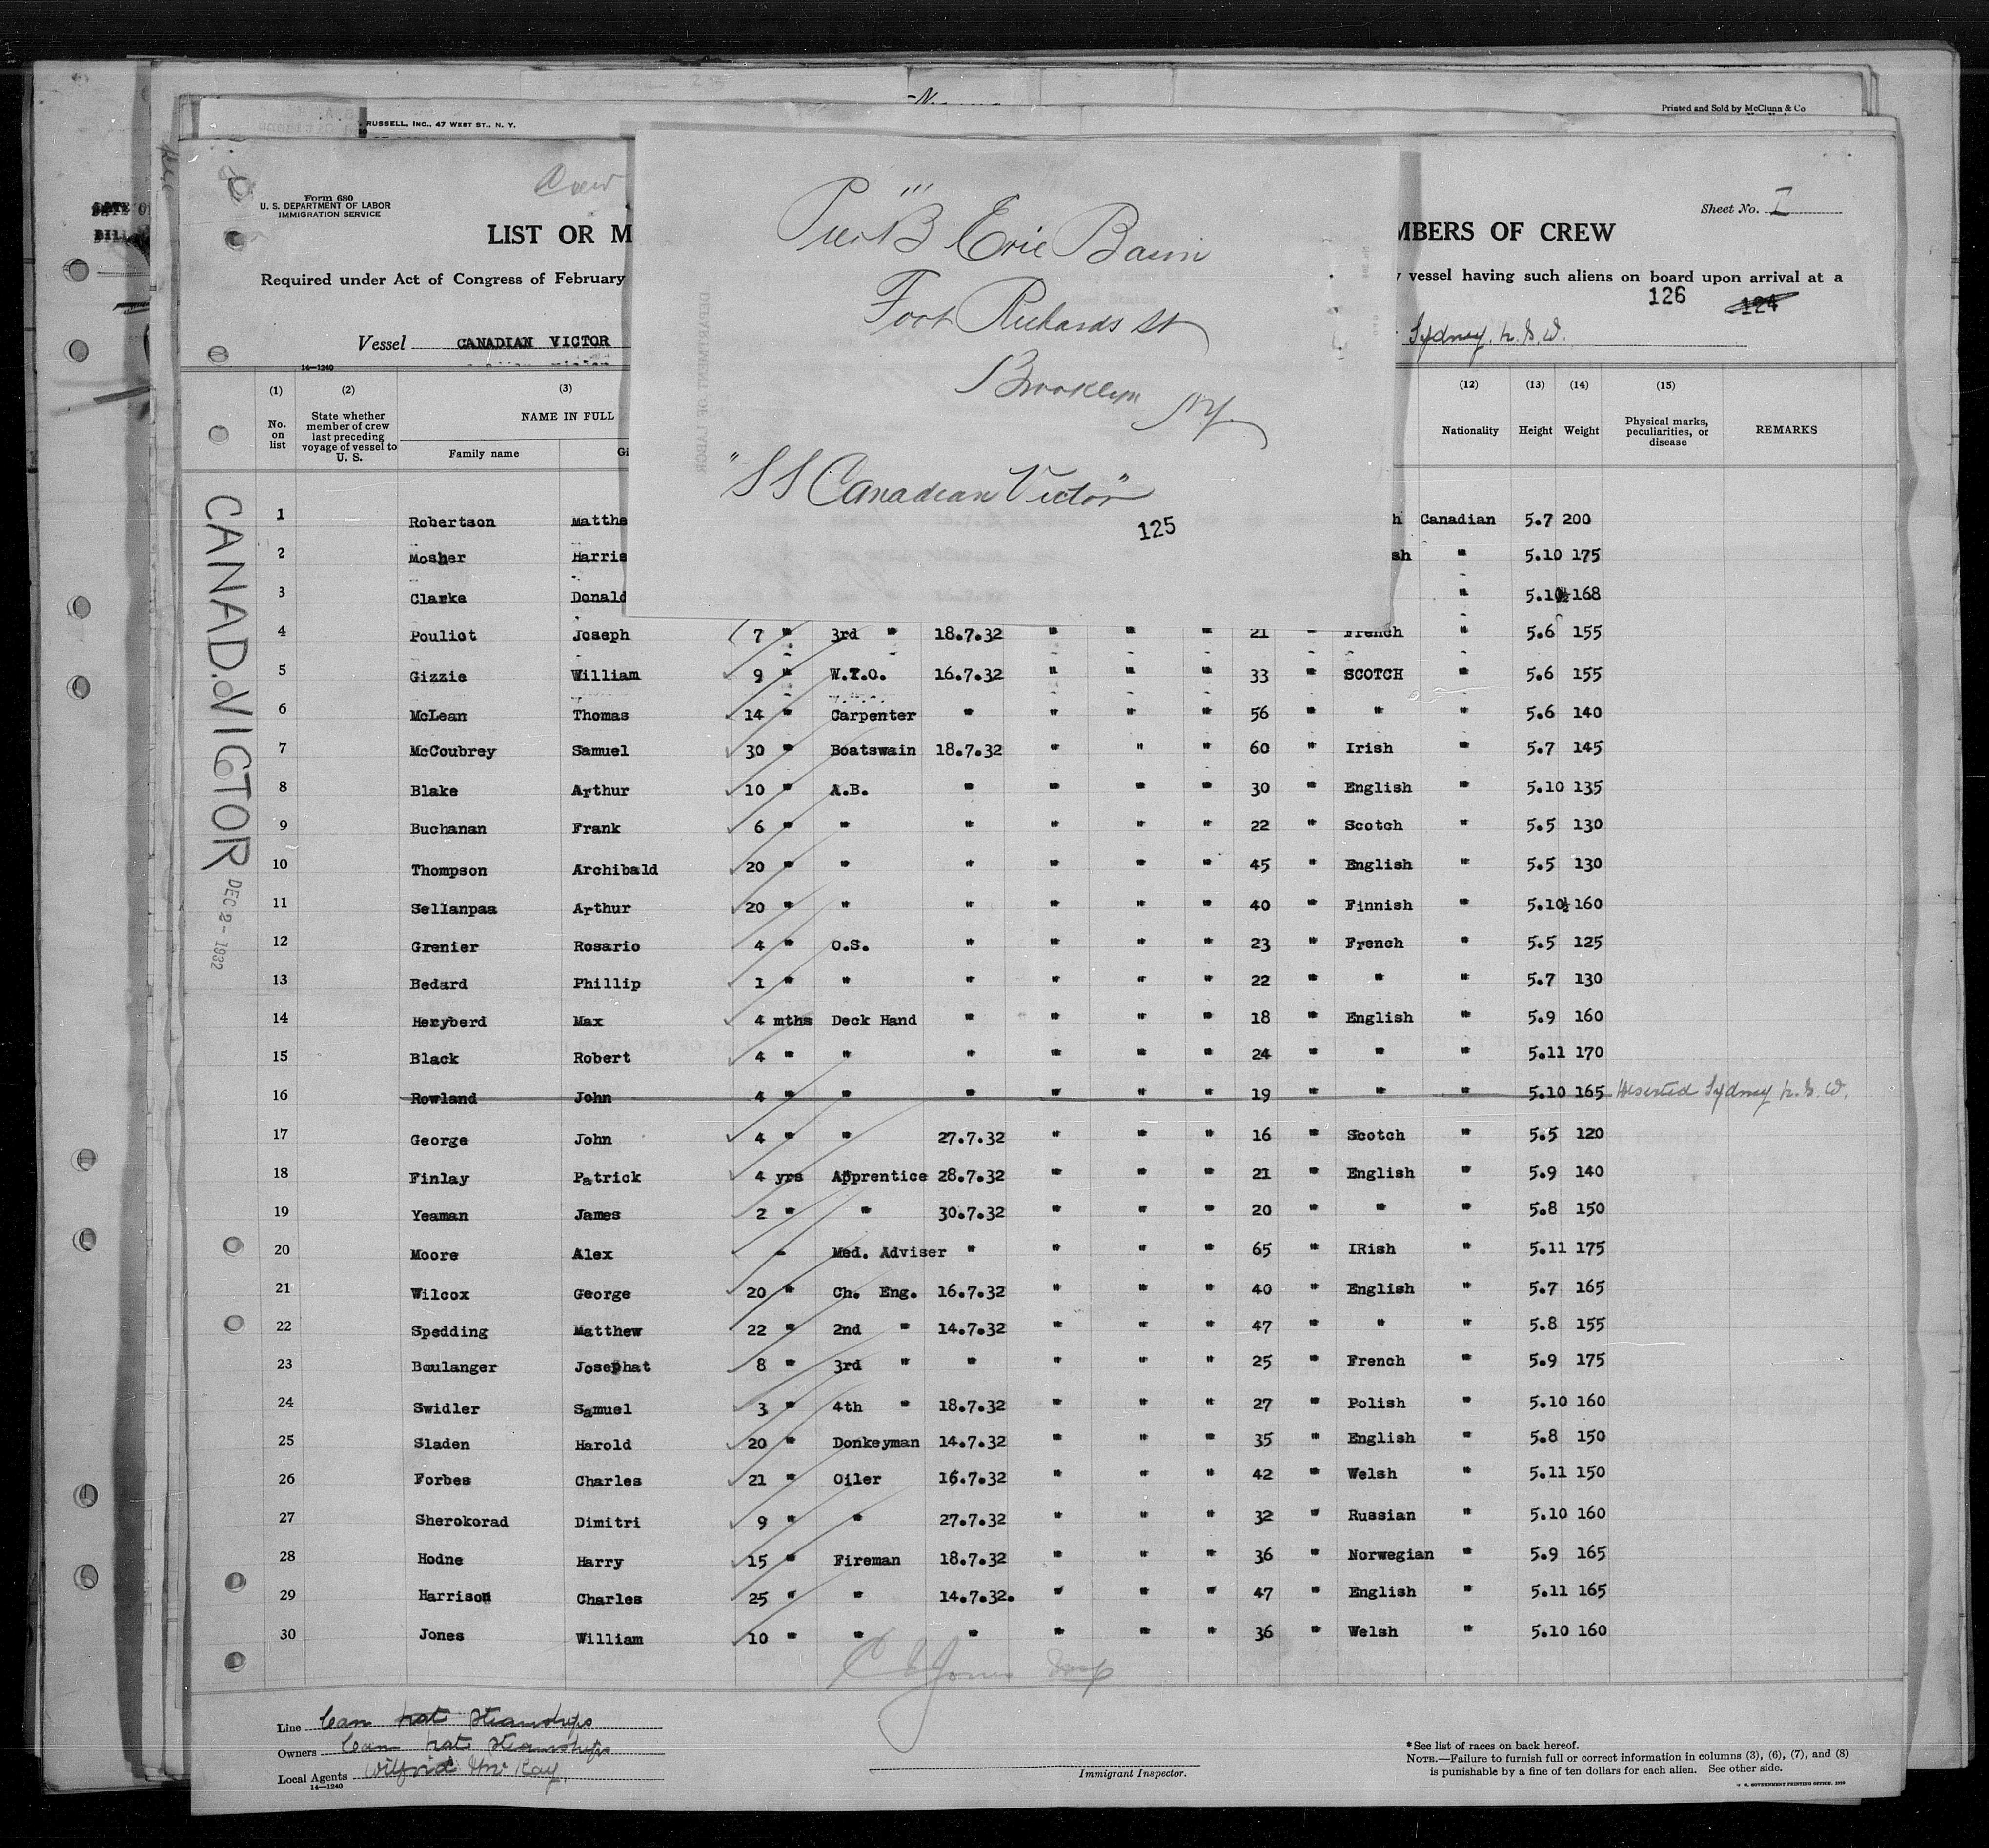 Printed and Sold by McClunn & Co
RUSSELL, INC., 47 WEST ST., N. Y.
Crew
Form 680
U. S. DEPARTMENT OF LABOR
IMMIGRATION SERVICE
Sheet No. I
LIST OR M
MBERS OF CREW
Required under Act of Congress of February
vessel having such aliens on board upon arrival at a
126 124
Vessel CANADIAN VICTOR
Sydney. N.S.W.
Pier "B" Erie Basin
Foot Richards St
Brooklyn NY
"SS Canadian Victor"
125
14—1240
(1) (2) (3) (12) (13) (14) (15)
No. on list
State whether member of crew last preceding voyage of vessel to U. S.
NAME IN FULL
Family name
Gi
Nationality Height Weight
Physical marks, peculiarities, or disease
REMARKS
CANAD. VICTOR
DEC 2 - 1932
1 Robertson Matthe h Canadian 5.7 200
2 Mosher Harris sh " 5.10 175
3 Clarke Donald " 5.10½ 168
4 Pouliot Joseph 7 " 3rd " 18.7.32 " " " 21 " French " 5.6 155
5 Gizzie William 9 " W.T.O. 16.7.32 " " " 33 " SCOTCH " 5.6 155
6 McLean Thomas 14 " Carpenter " " " " 56 " " " 5.6 140
7 McCoubrey Samuel 30 " Boatswain 18.7.32 " " " 60 " Irish " 5.7 145
8 Blake Arthur 10 " A.B. " " " " 30 " English " 5.10 135
9 Buchanan Frank 6 " " " " " " 22 " Scotch " 5.5 130
10 Thompson Archibald 20 " " " " " " 45 " English " 5.5 130
11 Sellanpaa Arthur 20 " " " " " " 40 " Finnish " 5.10½ 160
12 Grenier Rosario 4 " O.S. " " " " 23 " French " 5.5 125
13 Bedard Phillip 1 " " " " " " 22 " " " 5.7 130
14 Heryberd Max 4 mths Deck Hand " " " " 18 " English " 5.9 160
15 Black Robert 4 " " " " " " 24 " " " 5.11 170
16 Rowland John 4 " " " " " " 19 " " " 5.10 165 Deserted Sydney N.S.W.
17 George John 4 " " 27.7.32 " " " 16 " Scotch " 5.5 120
18 Finlay Patrick 4 yrs Apprentice 28.7.32 " " " 21 " English " 5.9 140
19 Yeaman James 2 " " 30.7.32 " " " 20 " " " 5.8 150
20 Moore Alex - Med. Adviser " " " " 65 " IRish " 5.11 175
21 Wilcox George 20 " Ch. Eng. 16.7.32 " " " 40 " English " 5.7 165
22 Spedding Matthew 22 " 2nd " 14.7.32 " " " 47 " " " 5.8 155
23 Boulanger Josephat 8 " 3rd " " " " " 25 " French " 5.9 175
24 Swidler Samuel 3 " 4th " 18.7.32 " " " 27 " Polish " 5.10 160
25 Sladen Harold 20 " Donkeyman 14.7.32 " " " 35 " English " 5.8 150
26 Forbes Charles 21 " Oiler 16.7.32 " " " 42 " Welsh " 5.11 150
27 Sherokorad Dimitri 9 " " 27.7.32 " " " 32 " Russian " 5.10 160
28 Hodne Harry 15 " Fireman 18.7.32 " " " 36 " Norwegian " 5.9 165
29 Harrison Charles 25 " " 14.7.32. " " " 47 " English " 5.11 165
30 Jones William 10 " " " " " " 36 " Welsh " 5.10 160
Jones Insp
Line Can Nat Steamships
Owners Can Nat Steamships
Local Agents Wilfrid McKay
14—1240
Immigrant Inspector.
*See list of races on back hereof.
NOTE.—Failure to furnish full or correct information in columns (3), (6), (7), and (8)
is punishable by a fine of ten dollars for each alien. See other side.
GOVERNMENT PRINTING OFFICE